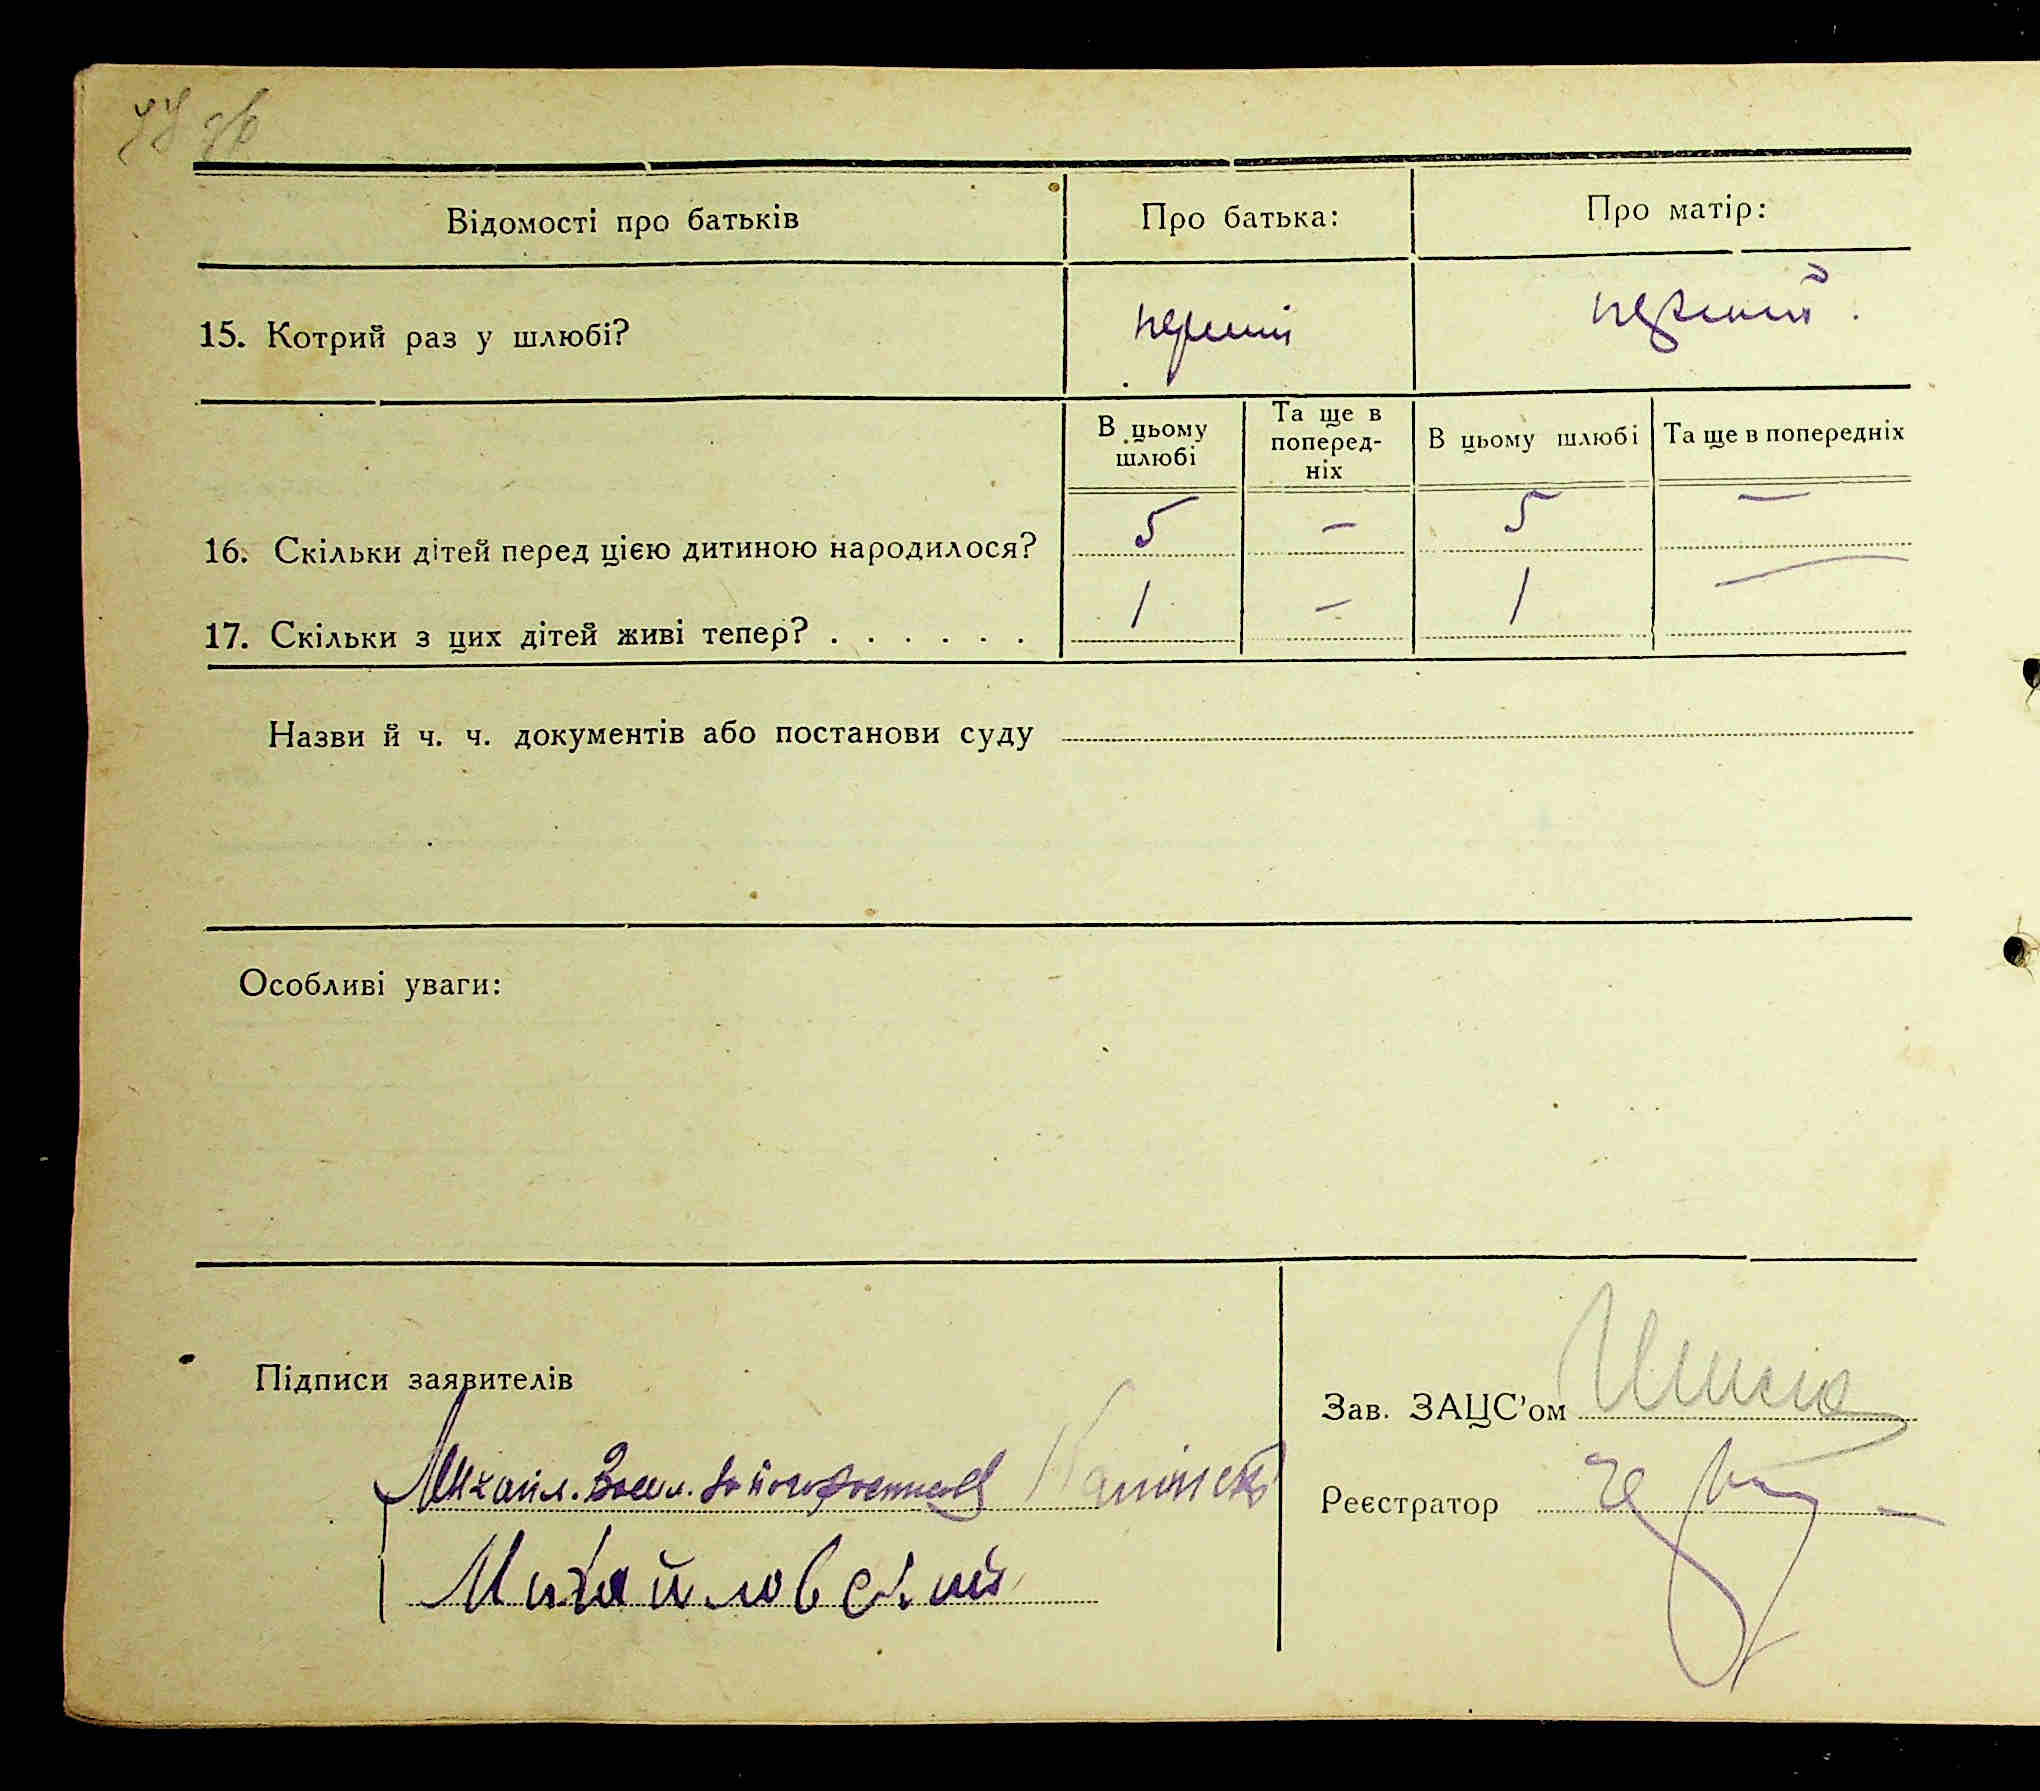 Відомості про батьків Про батька: Про матір:
15. Котрий раз у шлюбі? перший перший.
В цьому шлюбі Та ще в поперед-ніх В цьому шлюбі Та ще в попередніх
16. Скільки дітей перед цією дитиною народилося? 5 — 5 —
17. Скільки з цих дітей живі тепер? . . . . . . 1 — 1 —
Назви й ч. ч. документів або постанови суду
Особливі уваги:
Підписи заявителів
Зав. ЗАЦС'ом
Михайл.
Реєстратор
Михайловский